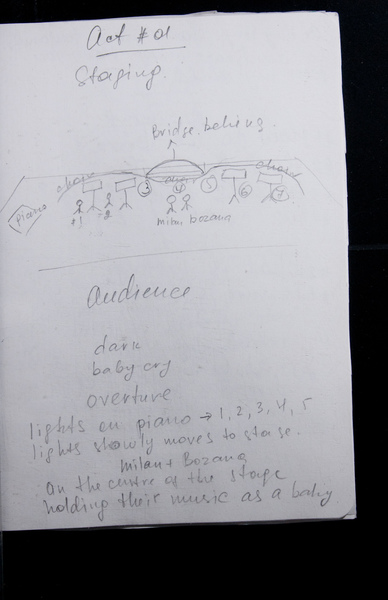 Act # 01
Staging.
Bridge behing
choir
choir
3
4
5
6
7
piano
1
2
milan bozana
audience
dark
baby cry
overture
lights on piano → 1, 2, 3, 4, 5
lights slowly moves to stage.
milan + Bozana
on the centre of the stage
holding their music as a baby